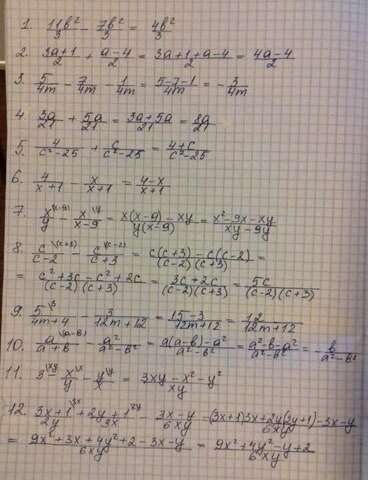 1. 11b²/3 - 7b²/3 = 4b²/3
2. 3a+1/2 + a-4/2 = 3a+1+a-4/2 = 4a-4/2
3. 5/4m - 7/4m - 1/4m = 5-7-1/4m = - 3/4m
4. 3a/21 + 5a/21 = 3a+5a/21 = 8a/21
5. 4/c²-25 + c/c²-25 = 4+c/c²-25
6. 4/x+1 - x/x+1 = 4-x/x+1
7. x\(x-9)/y - x\y/x-9 = x(x-9)-xy/y(x-9) = x²-9x-xy/xy-9y
8. c\(c+3)/c-2 - c\(c-2)/c+3 = c(c+3)-c(c-2)/(c-2)(c+3) =
= c²+3c-c²+2c/(c-2)(c+3) = 3c+2c/(c-2)(c+3) = 5c/(c-2)(c+3)
9. 5\3/4m+4 - 3/12m+12 = 15-3/12m+12 = 12/12m+12
10. a\(a-b)/a+b - a²/a²-b² = a(a-b)-a²/a²-b² = a²-b-a²/a²-b² = - b/a²-b²
11. 3\xy - x\x/y - y\y/x = 3xy-x²-y²/xy
12. 3x+1\3x/2y + 2y+1\2y/3x - 3x-y/6xy = (3x+1)3x+2y(2y+1)-3x-y/6xy
= 9x²+3x+4y²+2-3x-y/6xy = 9x²+4y²-y+2/6xy